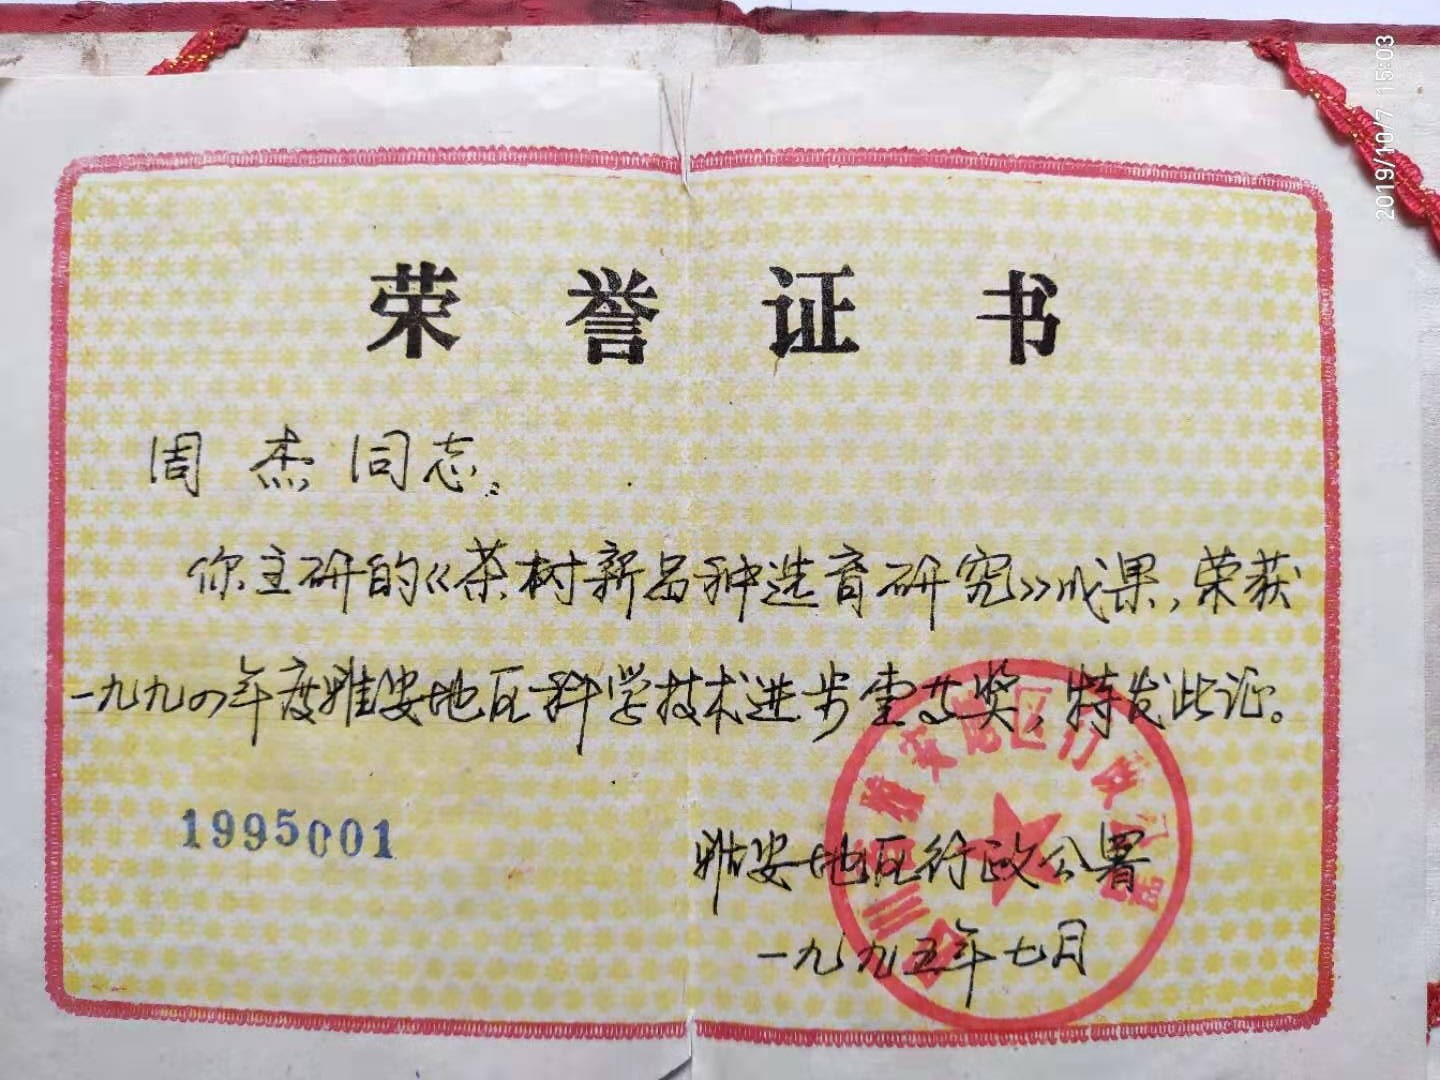 2019/10/7 15:03
荣誉证书
周杰同志:
你主研的《茶树新品种选育研究》成果,荣获
一九九四年度雅安地区科学技术进步壹等奖,特发此证。
1995001
雅安地区行政公署
一九九五年七月
四川省雅安地区行政公署